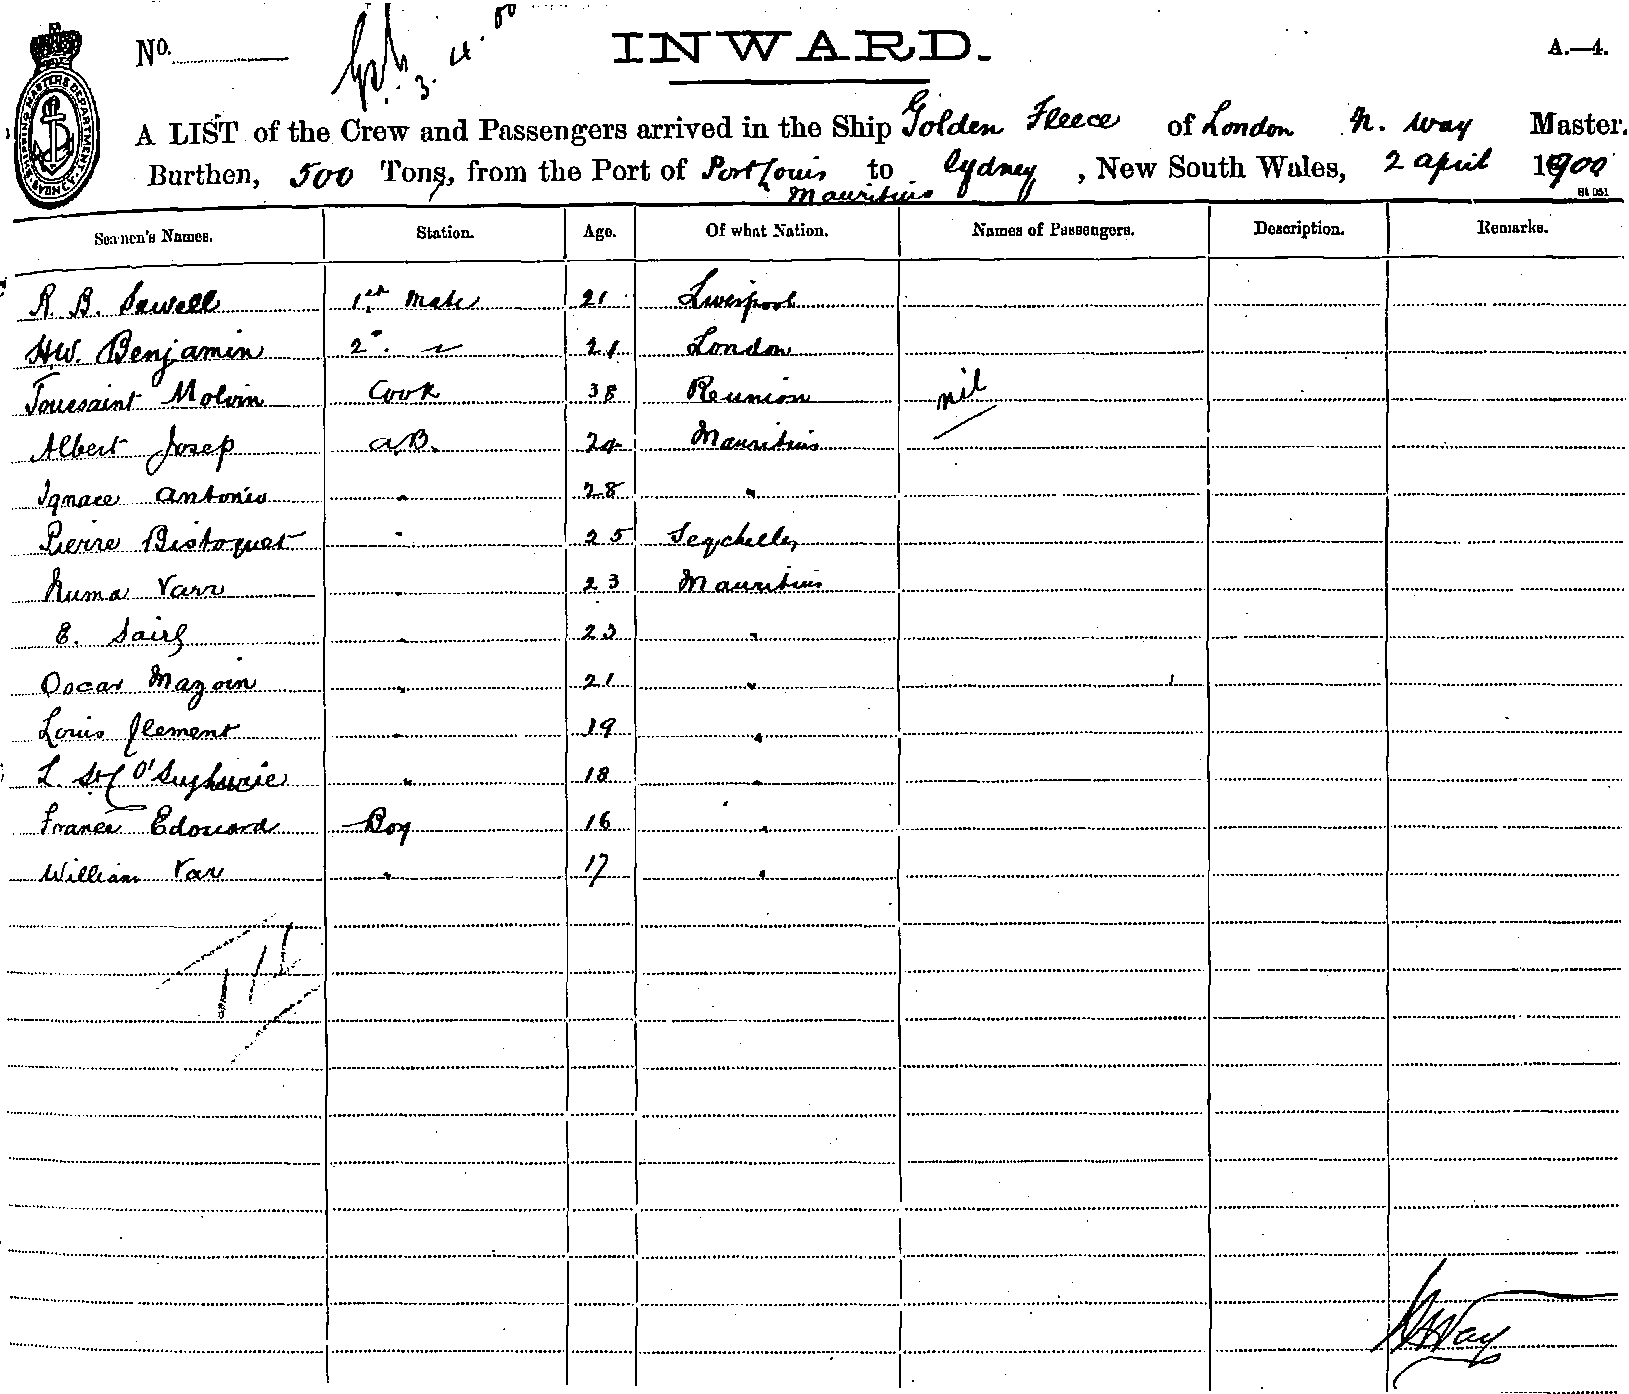 No.
3. 4. 00
INWARD.
A.—4.
A LIST of the Crew and Passengers arrived in the Ship Golden Fleece of London N. Way Master.
Burthen, 500 Tons, from the Port of Port Louis to Sydney, New South Wales, 2 April 1900
Mauritius
Seamen's Names. Station. Age. Of what Nation. Names of Passengers. Description. Remarks.
R. B. Sewell 1st Mate 21 Liverpool
H.W. Benjamin 2" " 21 London
Toussaint Molvin Cook 38 Reunion nil
Albert Josep A.B. 24 Mauritius
Ignace Antonio " 28 "
Pierre Bistoquet " 25 Seychelles
Numa Varr " 23 Mauritius
E. " 23 "
Oscar Mazoin " 21 "
Louis Clement " 19 "
L. " 18 "
France Edouard Boy 16 "
William Var " 17 "
N Way